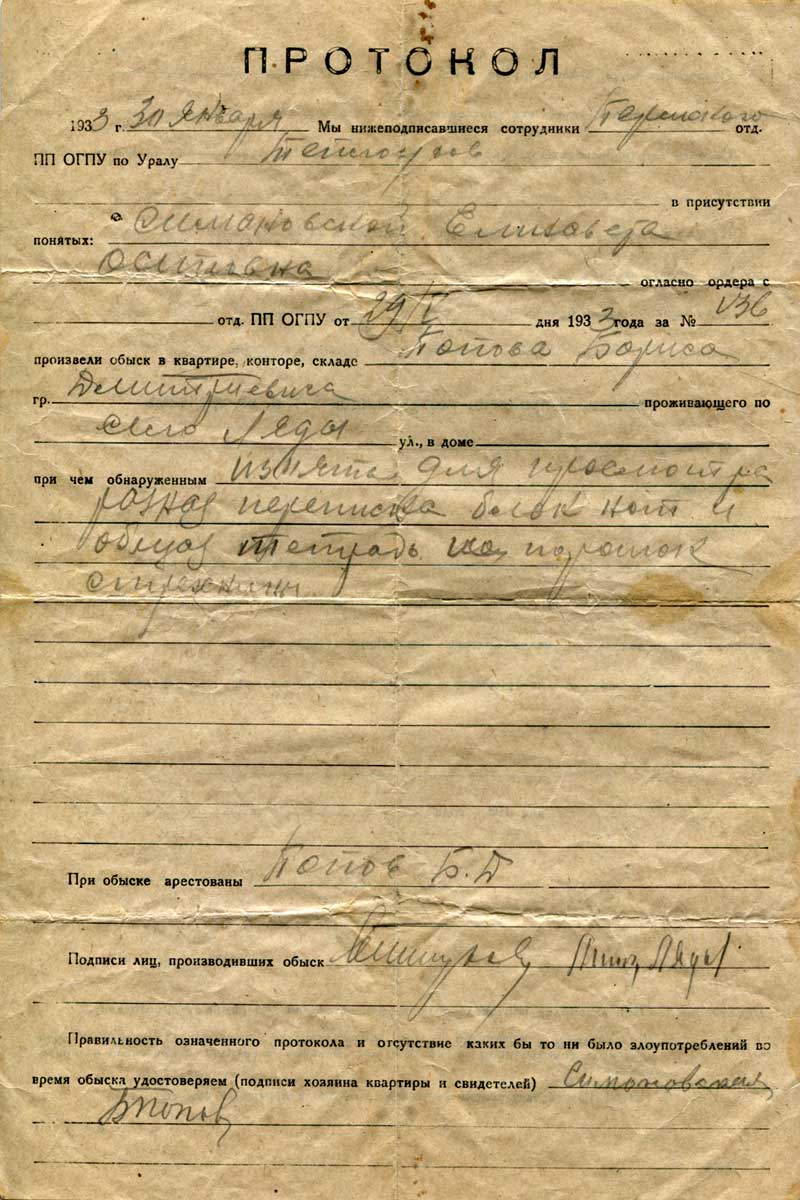 ПРОТОКОЛ
1933 г. 30 января Мы нижеподписавшиеся сотрудники Пермского отд.
ПП ОГПУ по Уралу
в присутствии
понятых: Симановской Елизавета
Осиповна огласно ордера с
отд. ПП ОГПУ от 29/I дня 1933 года за № 136
произвели обыск в квартире, конторе, складе Попова Бориса
гр. Дмитриевича проживающего по
село Ляды ул., в доме
при чем обнаруженным изъято для просмотра
разная переписка блок нот и
общая тетрадь порошок
стрехнин
При обыске арестованы Попов Б.Д
Подписи лиц, производивших обыск
Правильность означенного протокола и отсутствие каких бы то ни было злоупотреблений во
время обыска удостоверяем (подписи хозяина квартиры и свидетелей) Симановская
БПопов